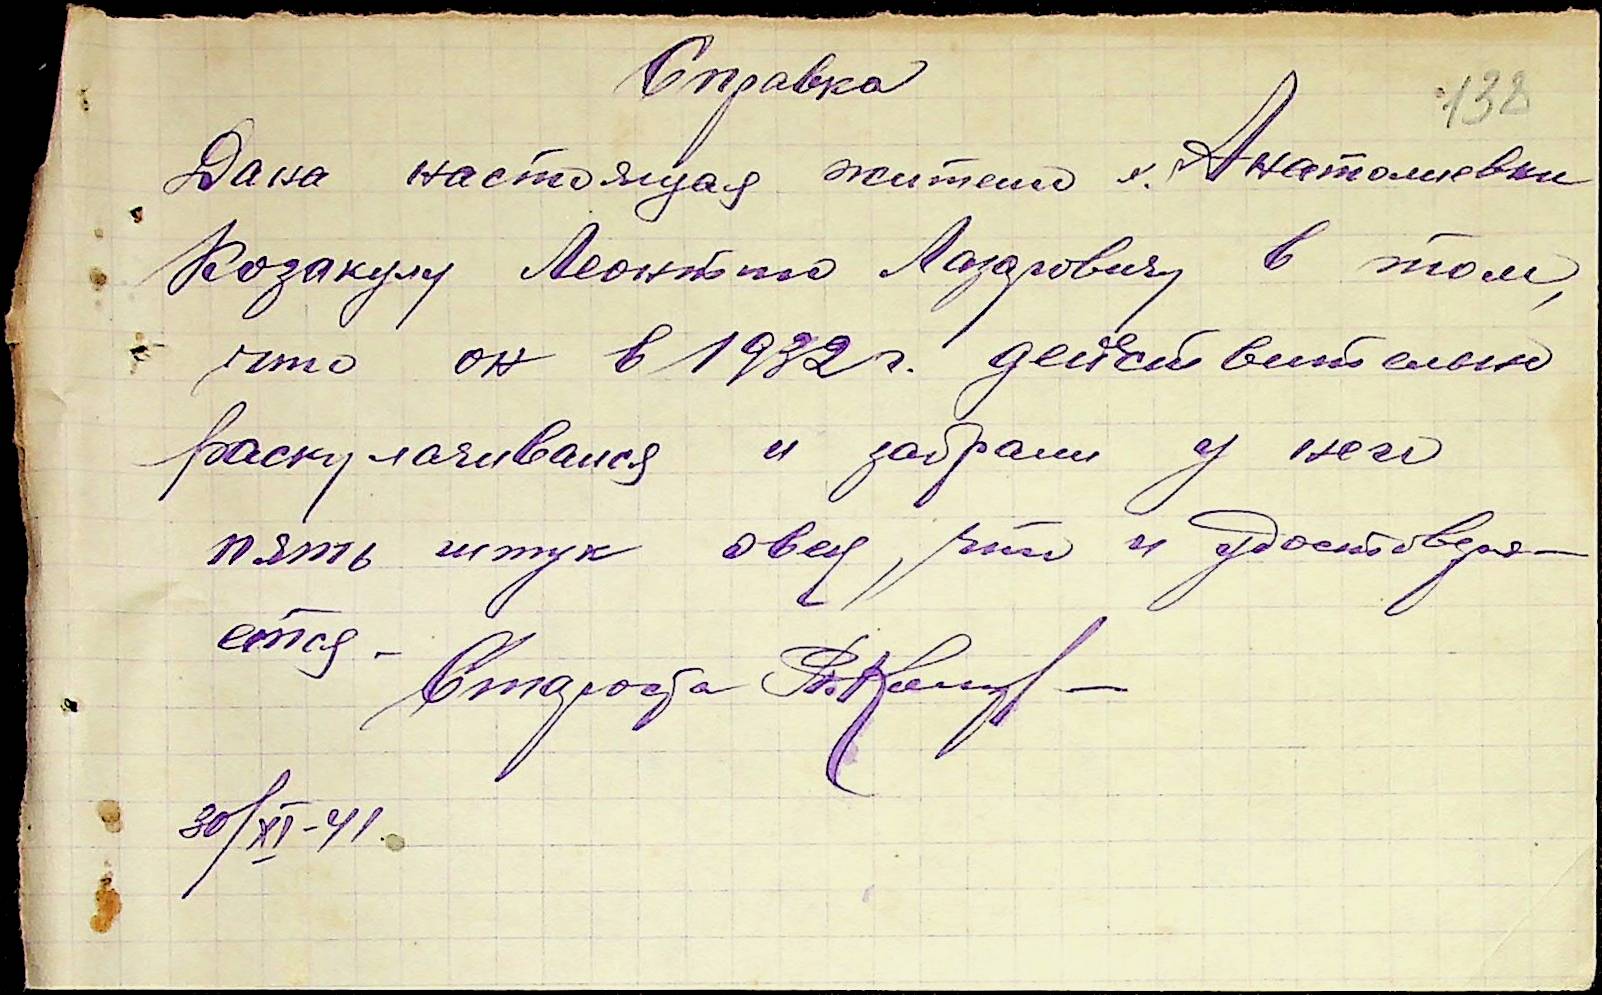 Справка
138
Дана настоящая жителю с. Анатолиевки
Козакулу Леонтию Лазаровичу в том,
что он в 1932 г. действительно
раскулачивался и забрали у него
пять штук овец, что и удостоверя-
ется -
Староста
30/XI-41.